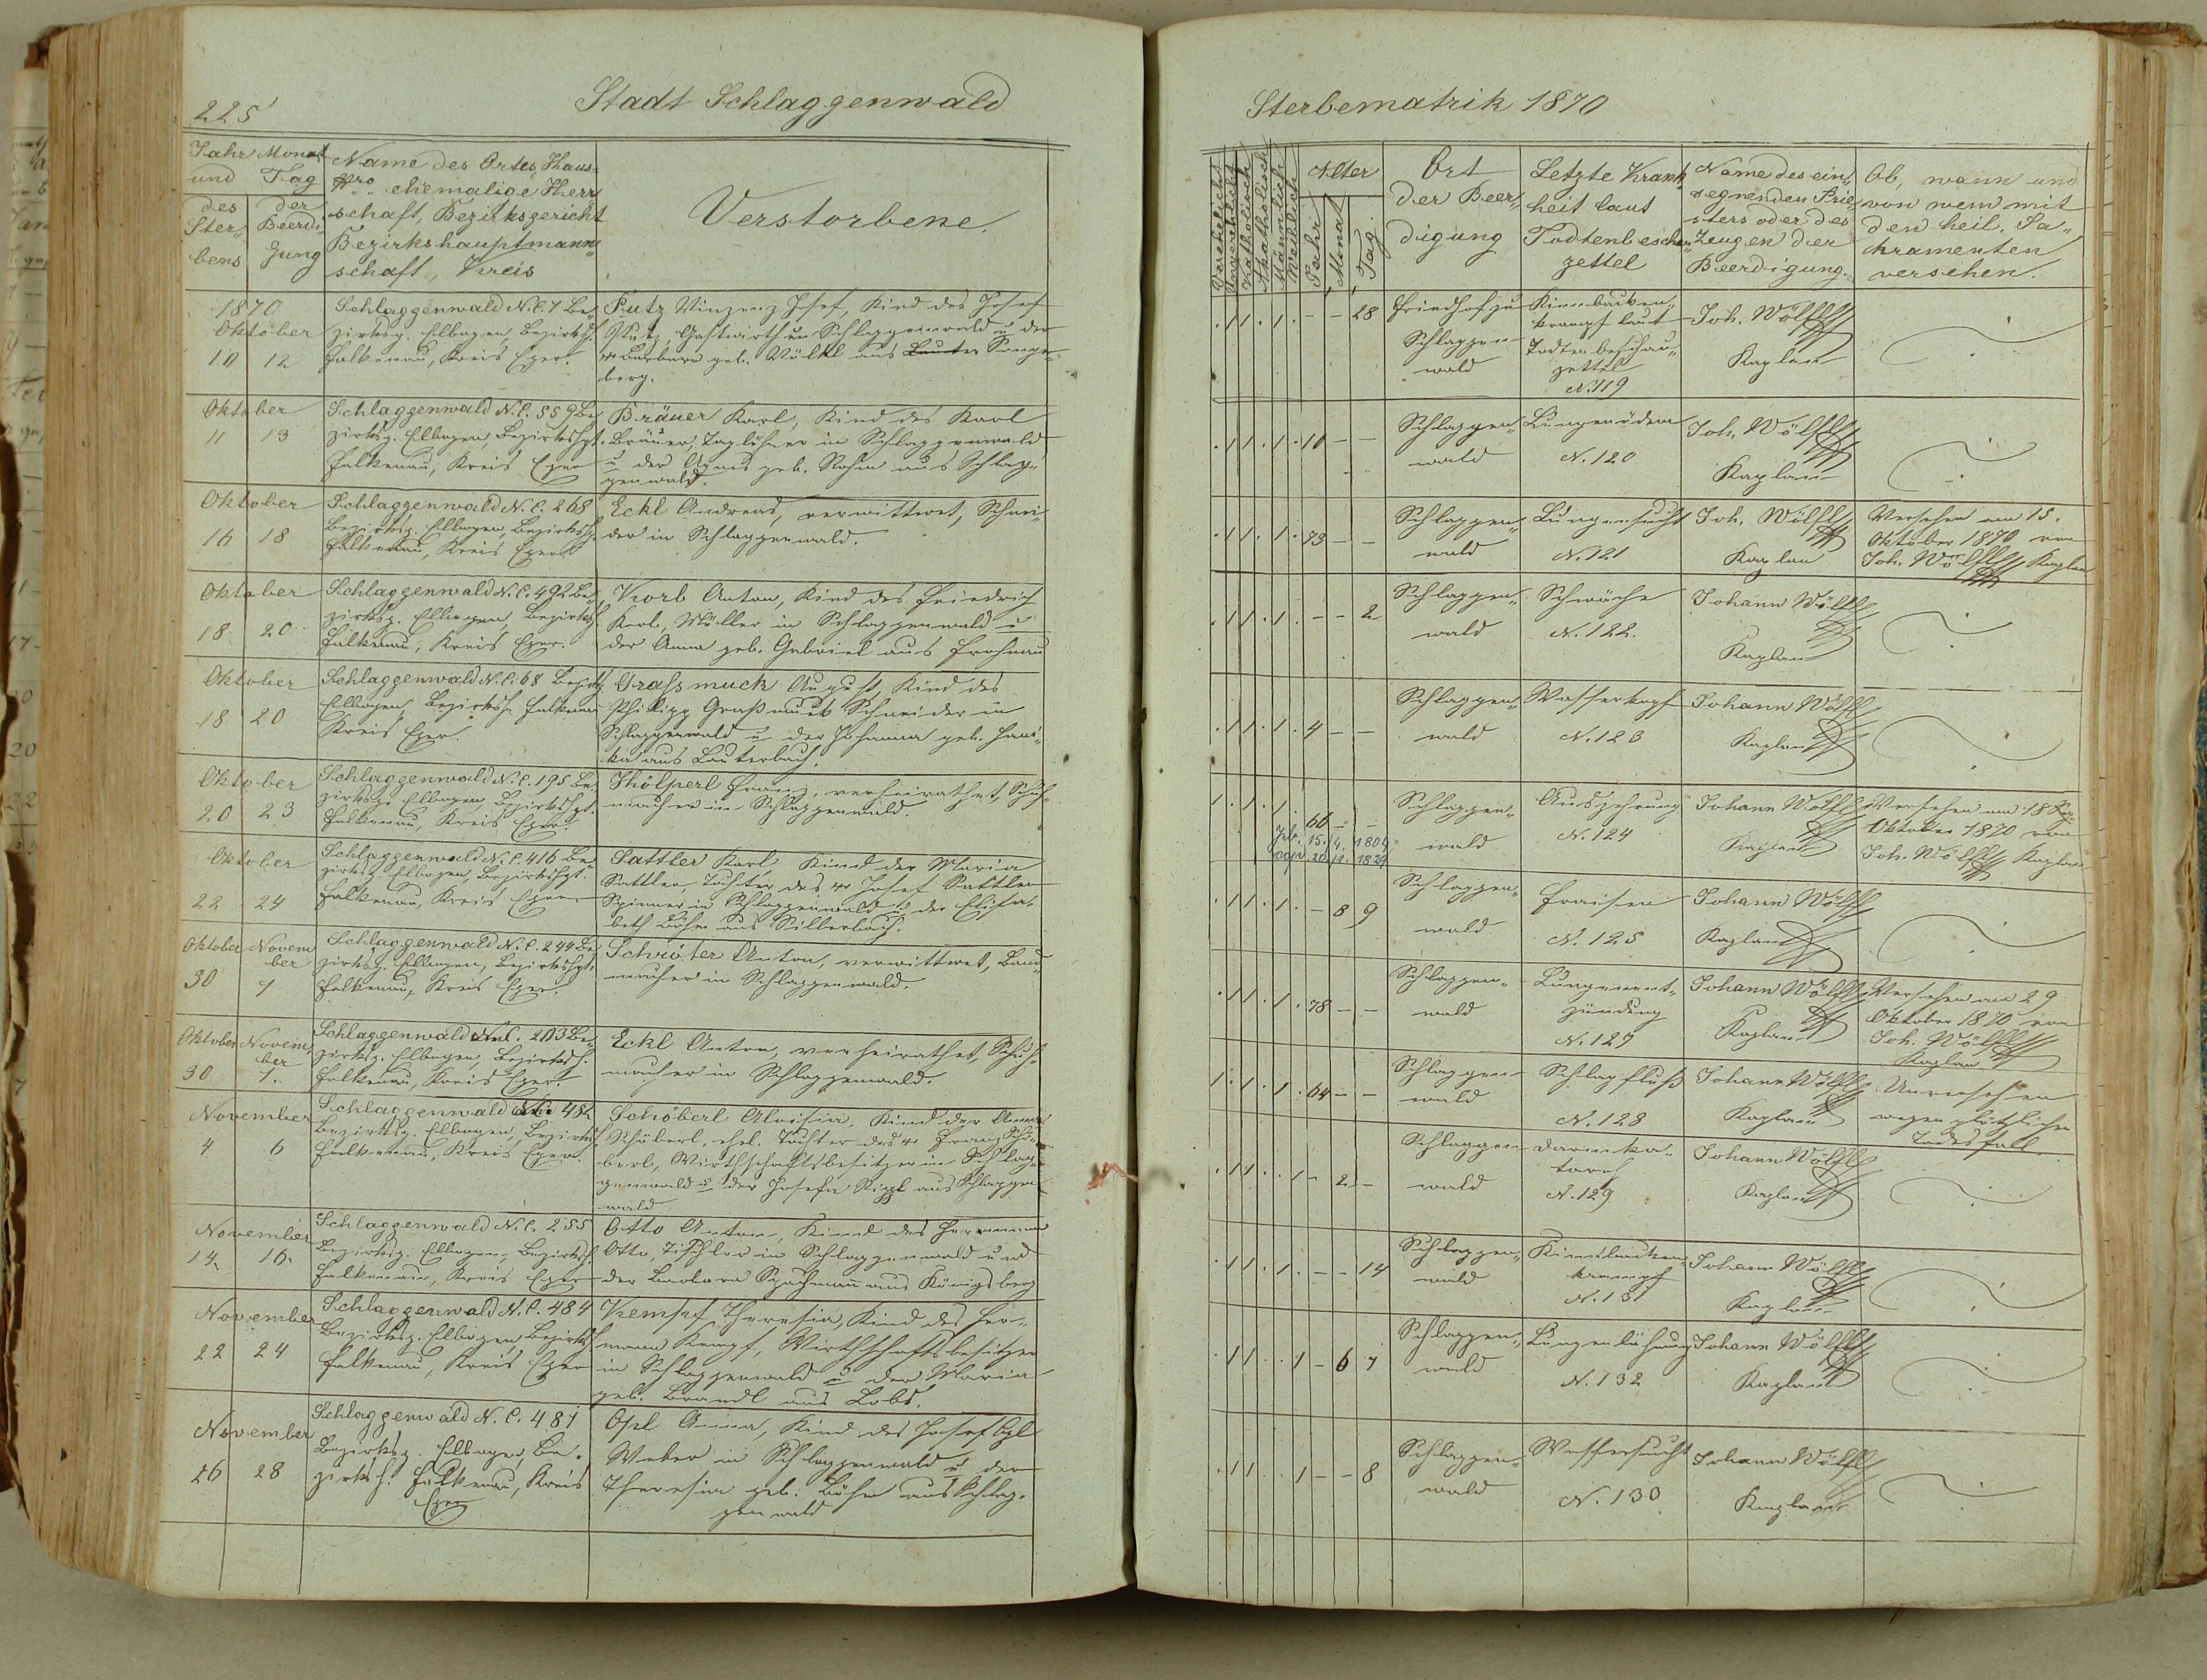 225
Stadt Schlaggenwald
Jahr Monat
und Tag
des der
Ster- Beerdi-
bens gung
Name des Ortes, Haus-
Nro ehemalige Herr-
schaft, Bezirksgericht
Bezirkshauptmann-
schaft, Kreis
Verstorbene.
1870
Oktober
10 12
Schlaggenwald N.C. 7 Be-
zirksg. Elbogen, Bezirksh.
Falkenau, Kreis Eger.
Putz Vinzenz Josef, Kind des Josef
Putz, Gastwirth in Schlaggenwald u der
Barbara geb. Völkl aus
berg.
Oktober
11 13
Schlaggenwald N.C. 559 Be-
zirksg. Elbogen, Bezirkshpt.
Falkenau, Kreis Eger
Bräuer Karl, Kind des Karl
Bräuer, Taglöhner in Schlaggenwald
u der Agnes geb. aus Schlag-
genwald.
Oktober
16 18
Schlaggenwald N.C. 268
Bezirksg. Elbogen, Bezirksh.
Falkenau, Kreis Eger
Eckl Andreas, verwittwet, Schnei-
der in Schlaggenwald.
Oktober
18 20
Schlaggenwald N.C. 492 Be-
zirksg. Elbogen, Bezirksh
Falkenau, Kreis Eger.
Korb Anton, Kind des Friedrich
Korb, Müller in Schlaggenwald u
der Anna geb. Gabriel aus Frohnau
Oktober
18 20
Schlaggenwald N.C. 68 Bezirksg
Elbogen, Bezirksh Falkenau
Kreis Eger.
Graßmuck August, Kind des
Philipp Graßmuck Schneider in
Schlaggenwald u der Johanna geb.
aus Lauterbach.
Oktober
20 23
Schlaggenwald N.C. 195 Be-
zirksg. Elbogen, Bezirkshpt.
Falkenau, Kreis Eger.
Hölperl Franz, verheirathet, Schuh-
macher in Schlaggenwald.
Oktober
22 24
Schlaggenwald N.C. 416 Be-
zirksg. Elbogen, Bezirkshpt.
Falkenau, Kreis Eger
Sattler Karl, Kind der Maria
Sattler, Tochter des Josef Sattler
Spinner in Schlaggenwald u der Elisa-
beth Böhm aus
Oktober Novem
ber
30 1
Schlaggenwald N.C. 244 Be-
zirksg. Elbogen, Bezirkshpt.
Falkenau, Kreis Eger.
Schröter Anton, verwittwet, Band-
macher in Schlaggenwald.
Oktober Novem-
ber
30 1.
Schlaggenwald N.C. 203 Be-
zirksg. Elbogen, Bezirksh.
Falkenau, Kreis Eger.
Eckl Anton, verheirathet, Schuh-
macher in Schlaggenwald.
November
4 6
Schlaggenwald N.C. 482
Bezirksg. Elbogen, Bezirksh
Falkenau, Kreis Eger.
Schöberl Aloisia, Kind der Anna
Schöberl, ehel. Tochter des Franz Schö-
berl, Wirthschaftsbesitzer in Schlag-
genwald u der Josefa aus Schlaggen
wald
November
14 16
Schlaggenwald N.C. 255
Bezirksg. Elbogen, Bezirksh.
Falkenau, Kreis Eger
Otto Anton, Kind des Hermann
Otto, Tischler in Schlaggenwald und
der Barbara aus Königsberg
November
22 24
Schlaggenwald N.C. 484
Bezirksg. Elbogen, Bezirksh
Falkenau, Kreis Eger
Kempf Theresia, Kind des Her-
mann Kempf, Wirthschaftsbesitzer
in Schlaggenwald u der Maria
geb. Brandl aus Lobs.
November
26 28
Schlaggenwald N.C. 481
Bezirksg. Elbogen, Be-
zirksh. Falkenau, Kreis
Eger
Opl Anna, Kind des Josef Opl
Weber in Schlaggenwald u der
Theresia geb. Böhm aus Schlag-
genwald
Sterbematrik 1870
Verehelicht
Unverehelicht
Katholisch
Akatholisch
Männlich
Weiblich
Alter
Jahr
Monat
Tag
Ort
der Beer-
digung
Letzte Krank-
heit laut
Todtenbeschau-
zettel
Name des ein-
segnenden Prie-
sters oder des
Zeugen der
Beerdigung.
Ob, wann und
von wem mit
den heil. Sa-
kramenten
versehen.
. 1 1 . 1 . - - 28
Friedhof zu
Schlaggen
wald
Kinnbacken-
krampf laut
Todtenbeschau-
zettel
N. 119
Joh. Wölfl
Kaplan
. 1 1 . 1 . 11 - -
Schlaggen-
wald
Lungenödem
N. 120
Joh. Wölfl
Kaplan
. 1 1 . 1 . 73 - -
Schlaggen-
wald
Lungensucht
N. 121
Joh. Wölfl
Kaplan
Versehen am 15.
Oktober 1870 von
Joh. Wölfl Kaplan
. 1 1 . 1 . - - 2
Schlaggen-
wald
Schwäche
N. 122.
Johann Wölfl
Kaplan
. 1 1 . 1 . 4 - -
Schlaggen-
wald
Wasserkopf
N. 123
Johann Wölfl
Kaplan
1 . 1 . 1 . 66 - -
Geb. 15. 4. 1804
cop. 20. 1. 1829
Schlaggen-
wald
Auszehrung
N. 124
Johann Wölfl
Kaplan
Versehen am 18
Oktober 1870 von
Joh. Wölfl Kaplan
. 1 1 . 1 . - 8 9
Schlaggen-
wald
Fraisen
N. 125
Johann Wölfl
Kaplan
. 1 1 . 1 . 78 - -
Schlaggen-
wald
Lungenent-
zündung
N. 127
Johann Wölfl
Kaplan
Versehen am 29
Oktober 1870 von
Joh. Wölfl
Kaplan
1 . 1 . 1 . 64 - -
Schlaggen
wald
Schlagfluß
N. 128
Johann Wölfl
Kaplan
Unversehen
wegen plötzlichen
Todesfall.
. 1 1 . . 1 - 2 -
Schlaggen
wald
Darmka-
tarrh
N. 129
Johann Wölfl
Kaplan
. 1 1 . 1 . - - 14
Schlaggen-
wald
Kinnbacken-
krampf
N. 131
Johann Wölfl
Kaplan
. 1 1 . . 1 - 6 7
Schlaggen-
wald
Lungenlähmung
N. 132
Johann Wölfl
Kaplan
. 1 1 . . 1 - - 8
Schlaggen-
wald
Wassersucht
N. 130
Johann Wölfl
Kaplan